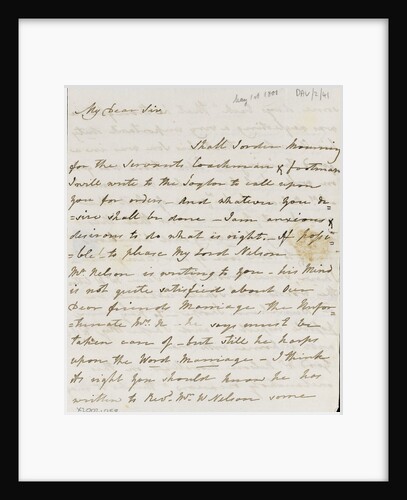 May 1st 1801 DAV/2/41
My Dear Sir
Shall I order Mourning
for the Servants Coachman & footman
I will write to the Taylor to call upon
you for orders - And whatever you de=
=sire shall be done - I am anxious &
desirous to do what is right, - If possi=
=ble! to please My Lord Nelson -
Mr Nelson is writing to you - his Mind
is not quite satisfied about our
Dear friends Marriage, the Unfor=
=tunate Mrs. N. he says must be
taken care of - but still he harps
upon the Word Marriage - I think
its right you should know he has
written to Revd. Mr. W Nelson some